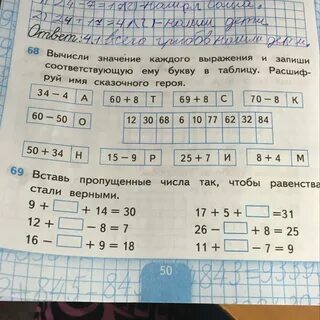 68 Вычисли значение каждого выражения и запиши
соответствующую ему букву в таблицу. Расшиф-
руй имя сказочного героя.
34 – 4 А 60 + 8 Т 69 + 8 С 70 – 8 К
60 – 50 О 12 30 68 6 10 77 62 32 84
50 + 34 Н 15 – 9 Р 25 + 7 И 8 + 4 М
69 Вставь пропущенные числа так, чтобы равенства
стали верными.
9 + □ + 14 = 30 17 + 5 + □ = 31
12 + □ – 8 = 7 26 – □ + 8 = 25
16 – □ + 9 = 18 11 + □ – 7 = 9
50